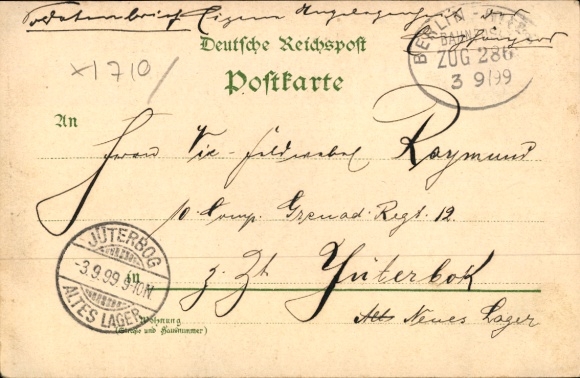 Soldatenbrief Eigene Angelegenheit des
Empfängers
BERLIN
BAHNPOST
ZUG 286
3 9/99
Deutsche Reichspost
Postkarte
x1710
An
Herrn Vice-Feldwebel Raymund
10. Comp. Grenad-Regt. 12.
JÜTERBOG
-3.9.99 9-10N
ALTES LAGER
in z. Zt Jüterbok
Alt Neues Lager
Wohnung
(Straße und Hausnummer)